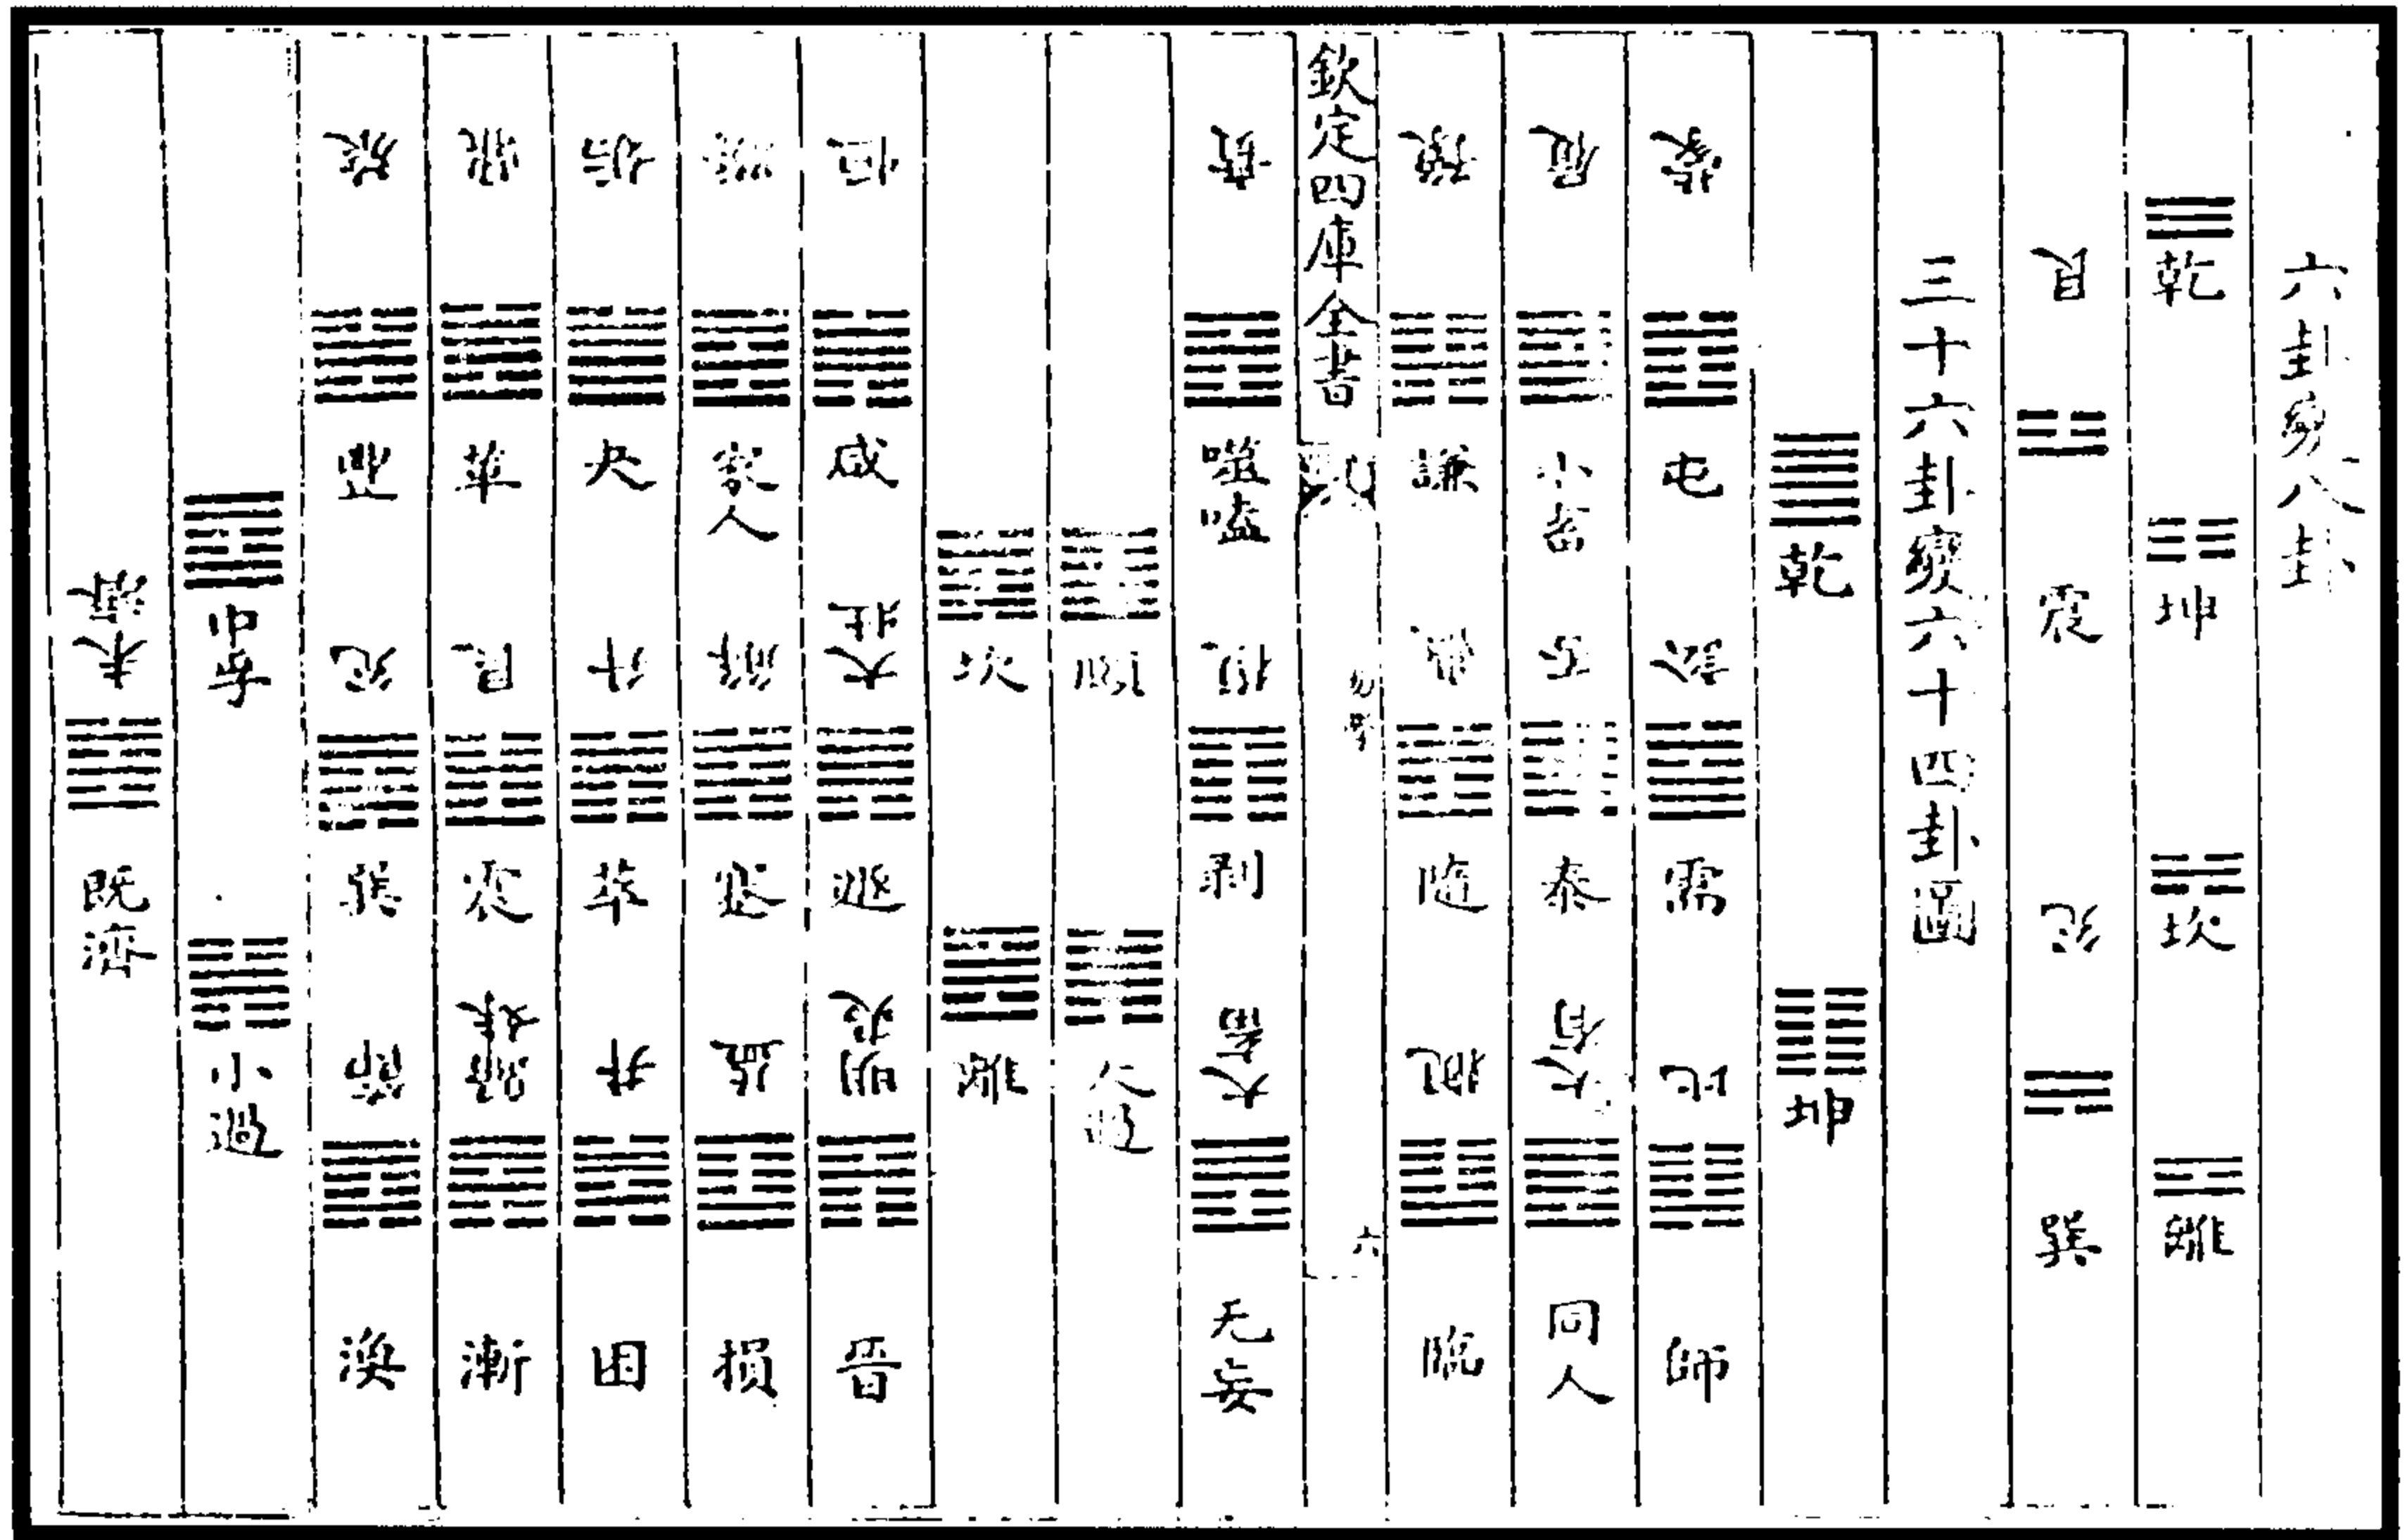 六卦變八卦
乾 坤 坎 離
艮 震 兌 巽
三十六卦變六十四卦圖
乾 坤
蒙 屯 訟 需 比 師
履 小畜 否 泰 大有 同人
豫 謙 蠱 隨 觀 臨
欽定四庫全書 六
賁 噬嗑 復 剝 大畜 无妄
頤 大過
坎 離
恒 咸 大壯 遯 明夷 晉
睽 家人 解 蹇 益 損
姤 夬 升 萃 井 困
鼎 革 艮 震 歸妹 漸
旅 豐 兌 巽 節 渙
中孚 小過
未濟 既濟